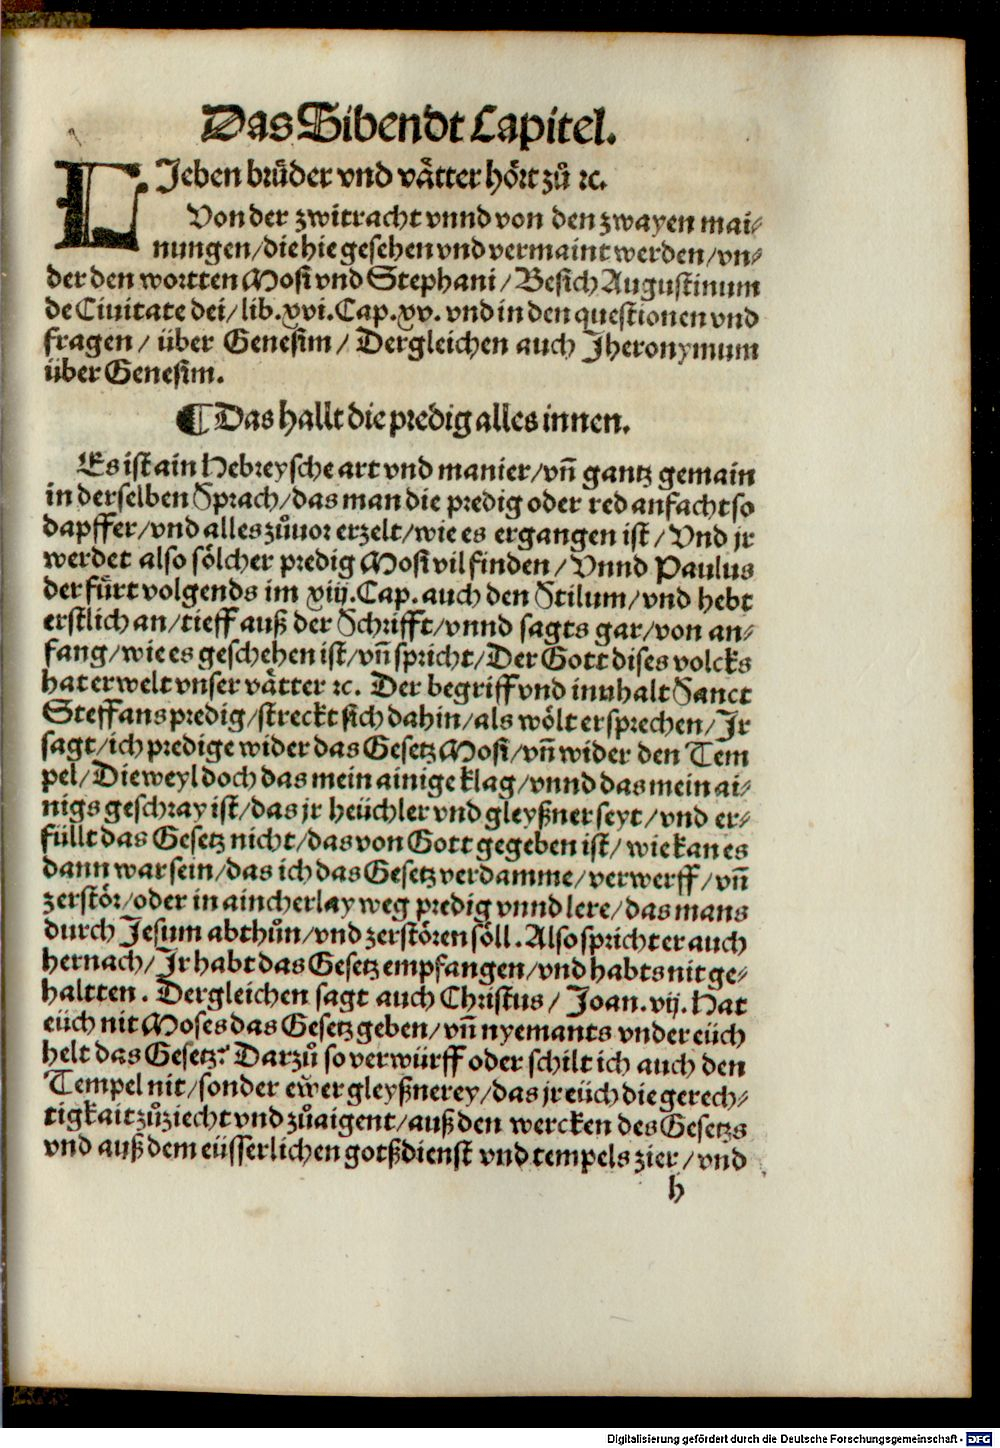 Das Sibendt Capitel.
LJeben brůder vnd våtter hört zů ꝛc.
Von der zwitracht vnnd von den zwayen mai⸗
nungen/ die hie gesehen vnd vermaint werden/ vn⸗
der den wortten Mosi vnd Stephani/ Besich Augustinum
de Ciuitate dei/ lib. xvi. Cap. xv. vnd in den questionen vnd
fragen/ über Genesim/ Dergleichen auch Jheronymum
über Genesim.
¶ Das hallt die predig alles innen.
Es ist ain Hebreysche art vnd manier/ vñ gantz gemain
in derselben Sprach/ das man die predig oder red anfacht so
dapffer/ vnd alles zůuor erzelt/ wie es ergangen ist/ Vnd jr
werdet also sölcher predig Mosi vil finden/ Vnnd Paulus
der fürt volgends im xiij. Cap. auch den Stilum/ vnd hebt
erstlich an/ tieff auß der Schrifft/ vnnd sagts gar/ von an⸗
fang/ wie es geschehen ist/ vñ spricht/ Der Gott dises volcks
hat erwelt vnser våtter ꝛc. Der begriff vnd innhalt Sanct
Steffans predig/ streckt sich dahin/ als wölt er sprechen/ Jr
sagt/ ich predige wider das Gesetz Mosi/ vñ wider den Tem
pel/ Dieweyl doch das mein ainige klag/ vnnd das mein ai⸗
nigs geschray ist/ das jr heüchler vnd gleyßner seyt/ vnd er⸗
füllt das Gesetz nicht/ das von Gott gegeben ist/ wie kan es
dann war sein/ das ich das Gesetz verdamme/ verwerff/ vñ
zerstör/ oder in aincherlay weg predig vnnd lere/ das mans
durch Jesum abthůn/ vnd zerstören söll. Also spricht er auch
hernach/ Jr habt das Gesetz empfangen/ vnd habts nit ge⸗
haltten. Dergleichen sagt auch Christus/ Joan. vij. Hat
eüch nit Moses das Gesetz geben/ vñ nyemants vnder eüch
helt das Gesetz? Darzů so verwürff oder schilt ich auch den
Tempel nit/ sonder ewer gleyßnerey/ das jr eüch die gerech⸗
tigkait zůziecht vnd zůaigent/ auß den wercken des Gesetzs
vnd auß dem eüsserlichen gotßdienst vnd tempels zier/ vnd
h
Digitalisierung gefördert durch die Deutsche Forschungsgemeinschaft - DFG